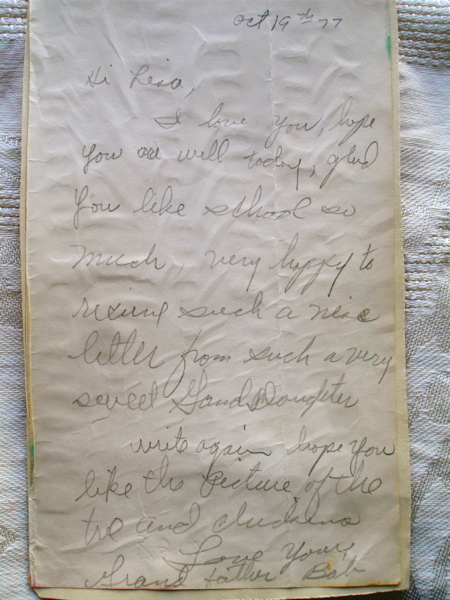 Oct 19th 77
Hi Lisa,
I love you, hope
you are well today, glad
you like school so
much, very happy to
such a nice
letter from such a very
sweet GrandDaughter
write again hope you
like the Picture of the
tre and
Love Your
Grand Father Bob